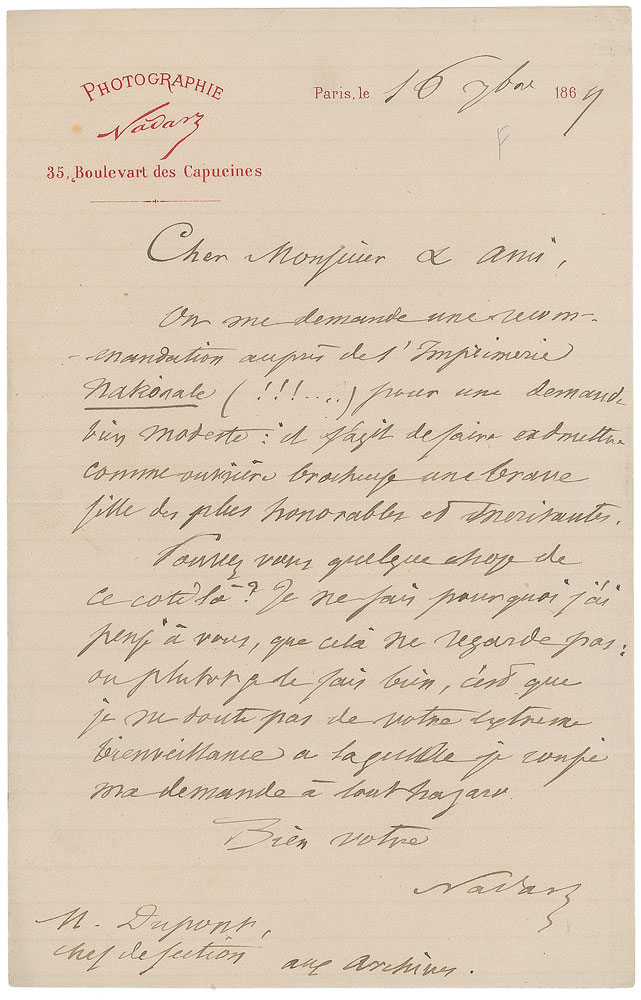 PHOTOGRAPHIE
Nadar
35, Boulevart des Capucines
Paris, le 16 7bre 1869
F
Cher Monsieur & ami,
On me demande une recom-
-mandation auprès de l'Imprimerie
Nationale (!!!....) pour une demande
bien modeste : il s'agit de faire admettre
comme ouvrière brocheuse une brave
fille des plus honorables et méritantes.
Pouvez vous quelque chose de
ce coté là ? Je ne sais pourquoi j'ai
pensé à vous, que cela ne regarde pas :
ou plutot je le sais bien, c'est que
je ne doute pas de votre extreme
bienveillance a laquelle je confie
ma demande à tout hazard.
Bien votre
Nadar
M. Dupont,
chef de section aux archives.